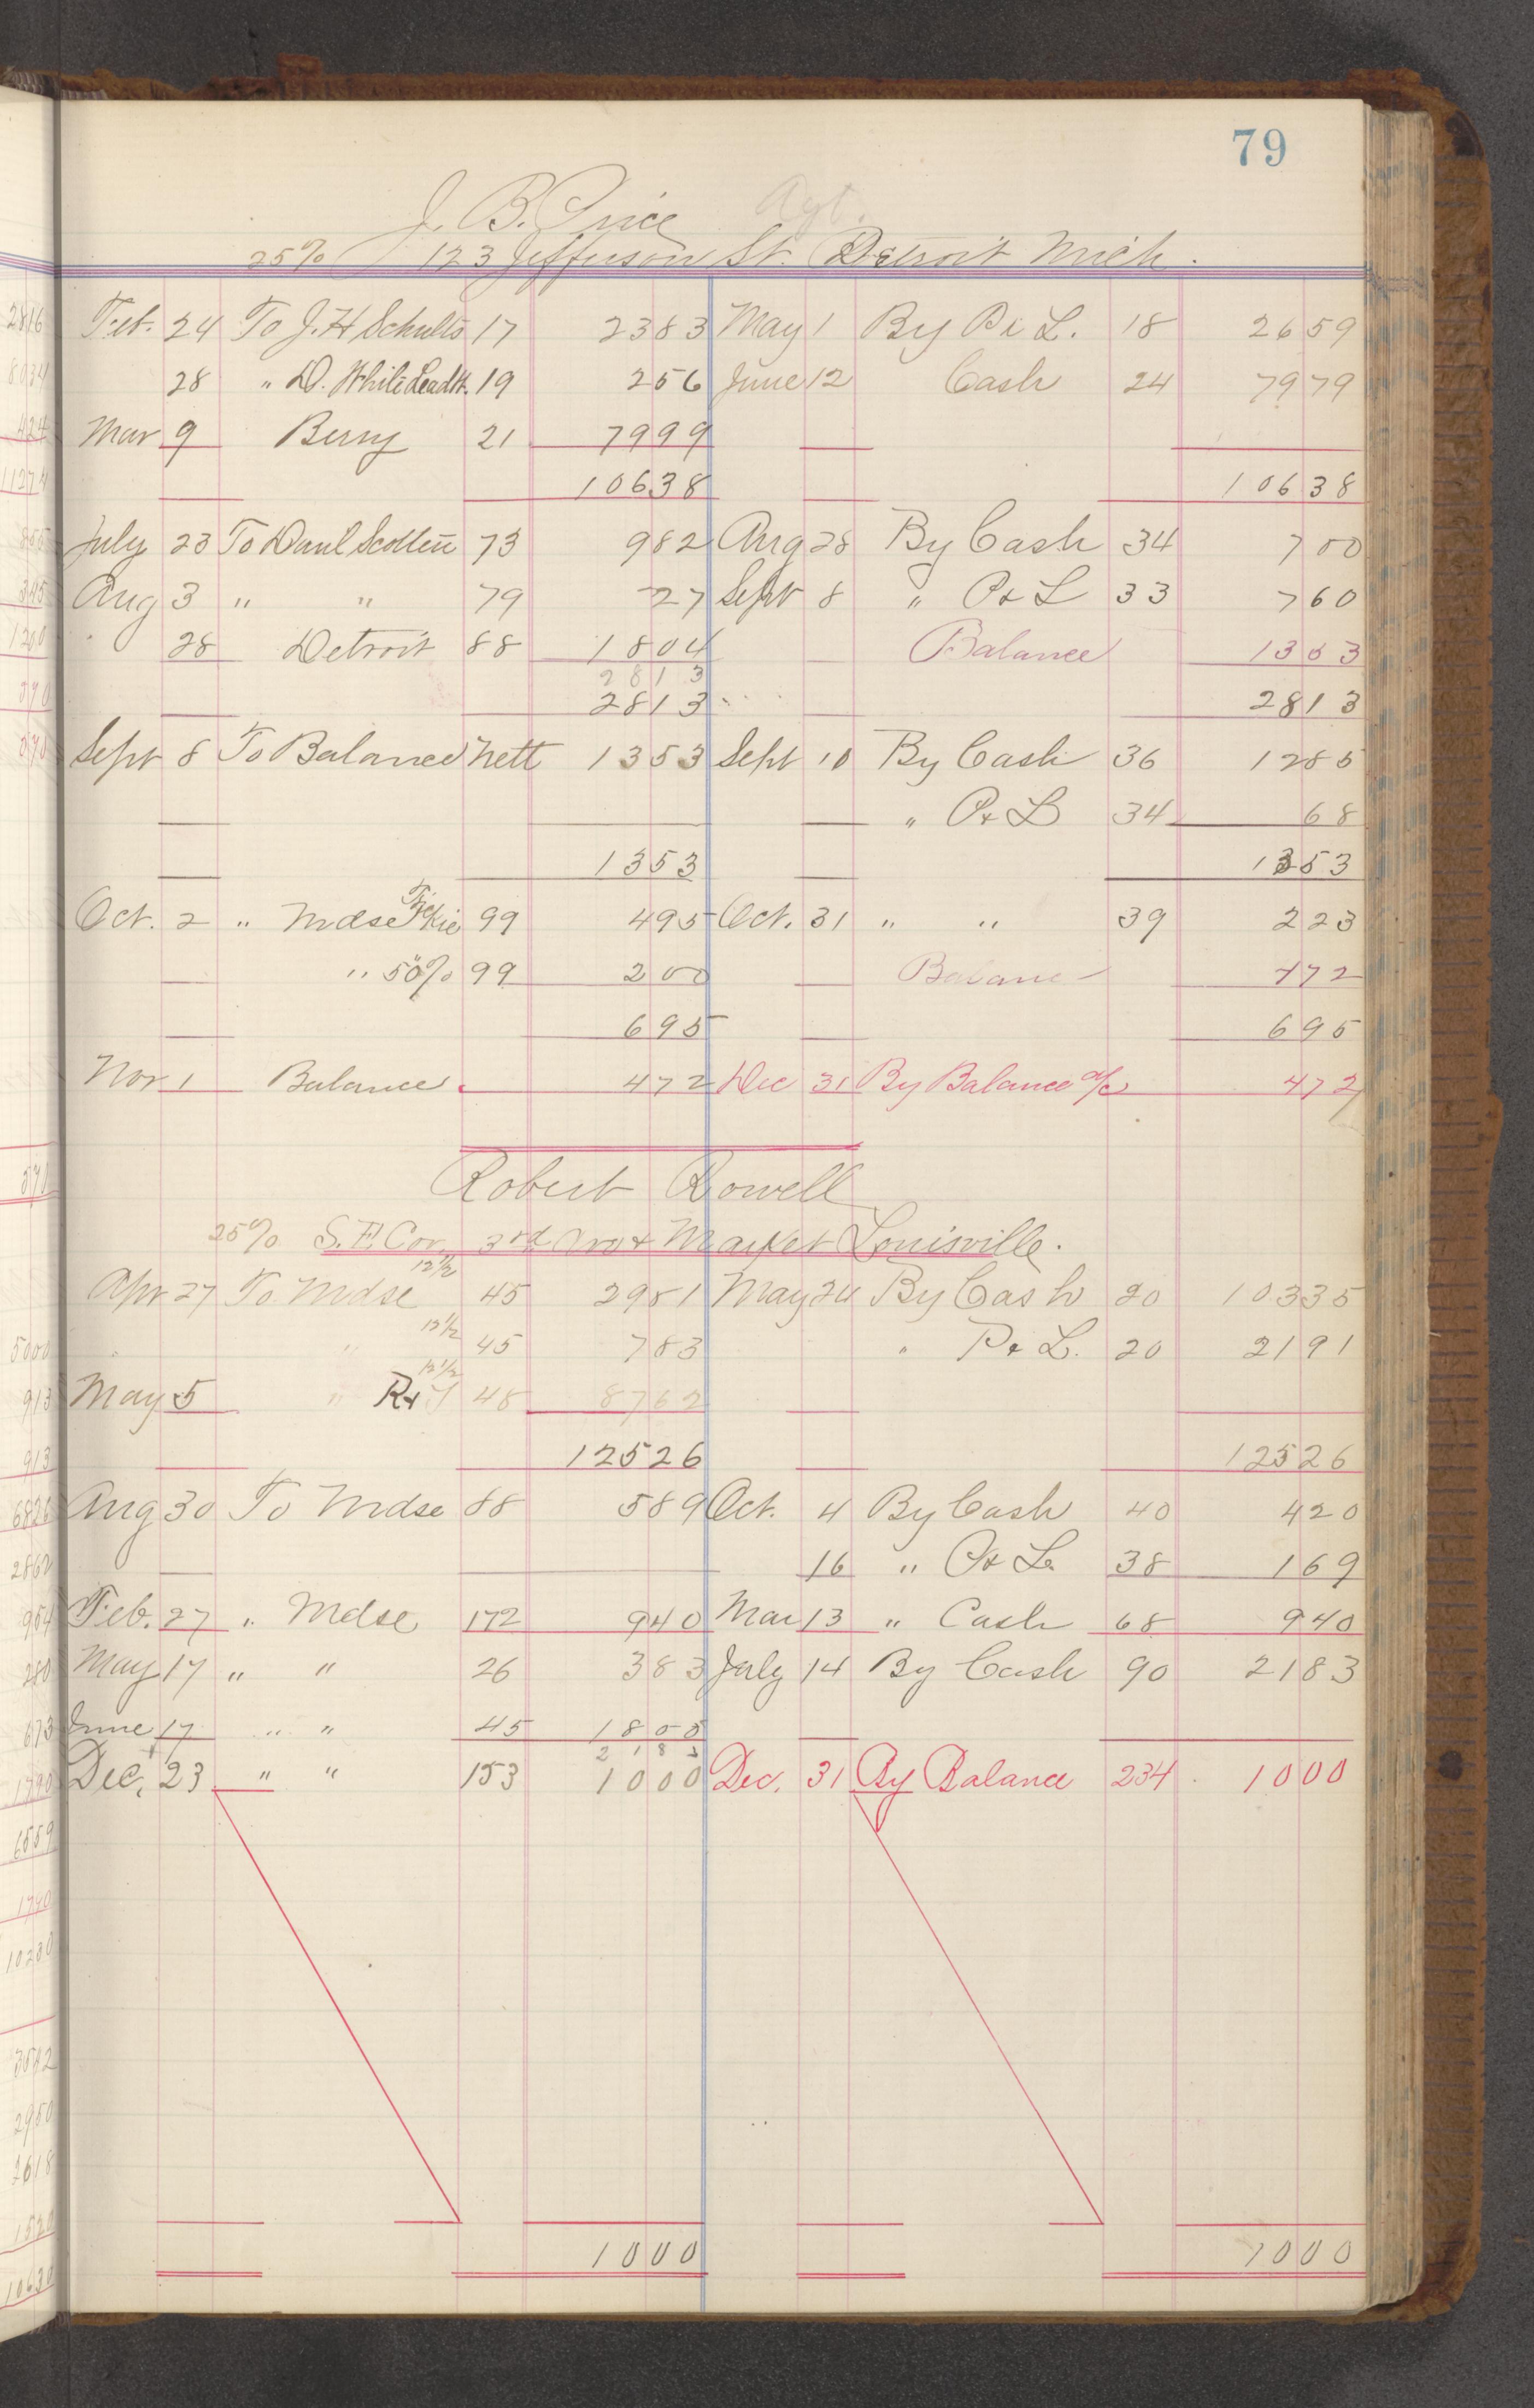 79
J. B. Price Agt.
25% 123 Jefferson St. Detroit Mich.
Feb. 24 To J. H Schults 17 2383 May 1 By P & L. 18 2659
28 " D. White Lead W. 19 256 June 12 Cash 24 7979
Mar 9 Berry 21 7999
10638 10638
July 23 To Danl Scotten 73 982 Aug 28 By Cash 34 700
Aug 3 " " 79 27 Sept 8 " P & L 33 760
28 Detroit 88 1804 Balance 1353
2813
2813 2813
Sept 8 To Balance Nett 1353 Sept 10 By Cash 36 1285
" P & L 34 68
1353 1353
Oct. 2 " Mdse 99 495 Oct. 31 " " 39 223
" 50% 99 200 Balance 472
695 695
Nov 1 Balance 472 Dec 31 By Balance a/c 472
Robert Rowell
25% S.E. Cor. 3rd & Market Louisville.
Apr 27 To Mdse 12½ 45 2981 May 24 By Cash 20 10335
" 12½ 45 783 " P & L. 20 2191
May 5 " R & 12½ 48 8762
12526 12526
Aug 30 To Mdse 88 589 Oct. 4 By Cash 40 420
16 " P & L 38 169
Feb. 27 " Mdse 172 940 Mar 13 " Cash 68 940
May 17 " " 26 383 July 14 By Cash 90 2183
June 17 " " 45 1800
2183
Dec. 23 " " 153 1000 Dec. 31 By Balance 234 1000
1000 1000